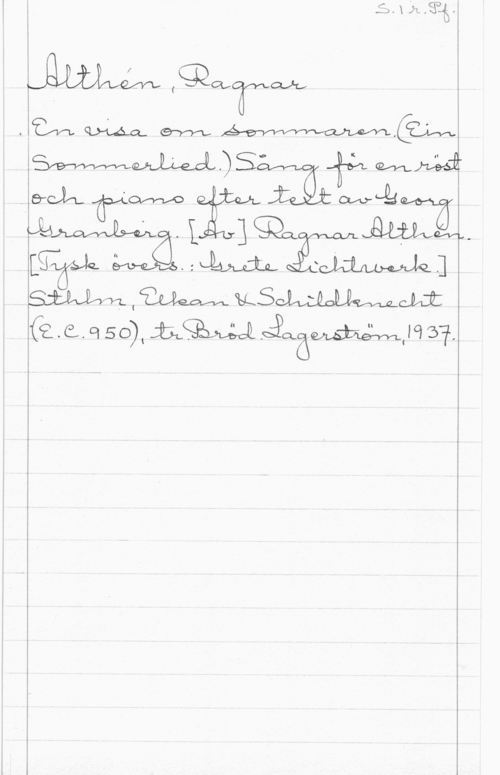 S. 1 r. Pf.
Althén, Ragnar
En visa om sommaren. (Ein
Sommerlied.) Sång för en röst
och piano efter text av Georg
Granberg. [Av] Ragnar Althén.
[Tysk övers.: Grete Lichtwerk.]
Sthlm, Elkan & Schildknecht
(E.C. 950), tr. Bröd. Lagerström, 1937.